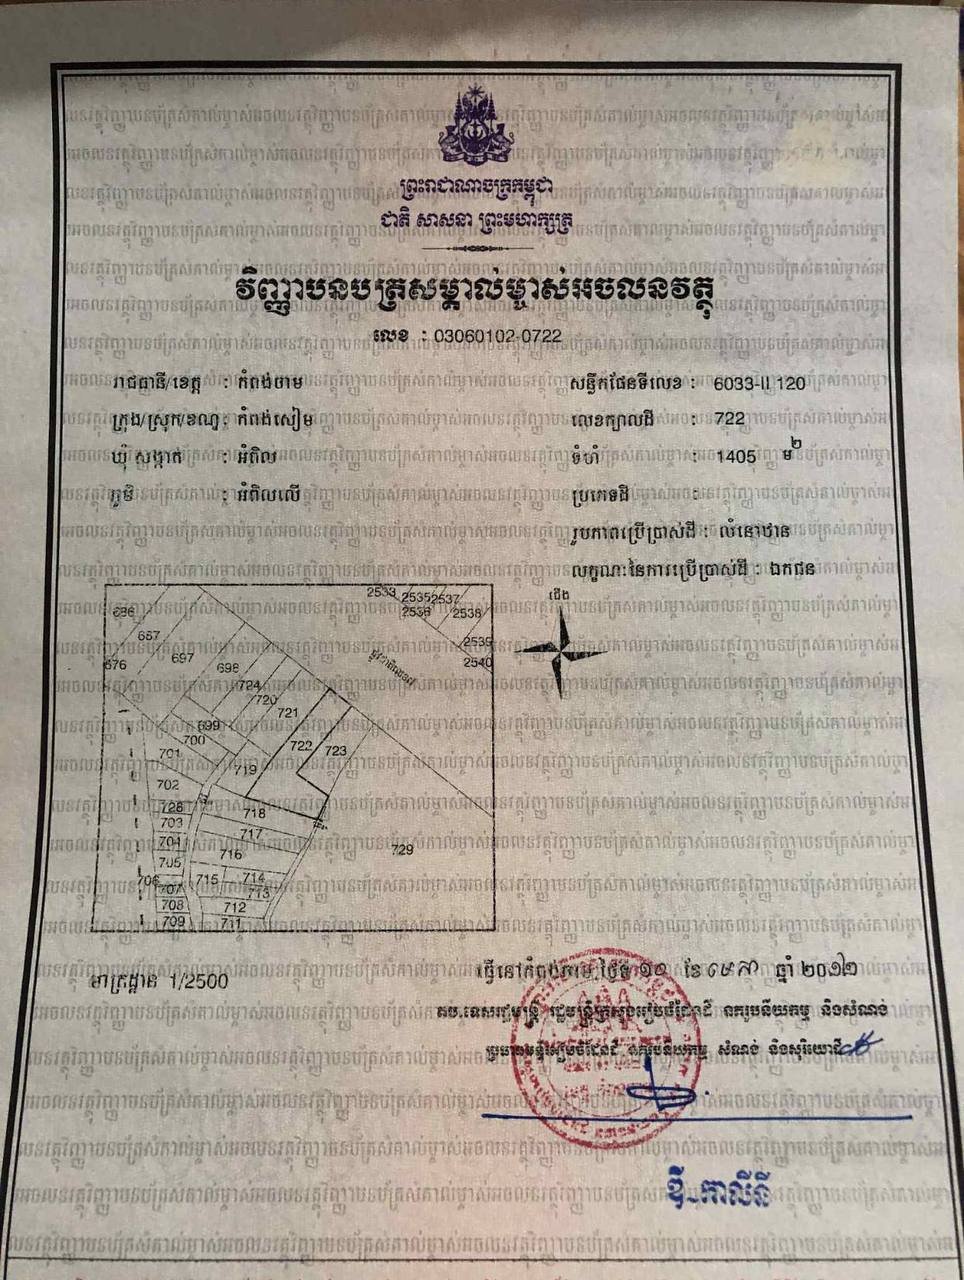 ព្រះរាជាណាចក្រកម្ពុជា
ជាតិ សាសនា ព្រះមហាក្សត្រ
វិញ្ញាបនបត្រសម្គាល់ម្ចាស់អចលនវត្ថុ
លេខ : 03060102-0722
រាជធានី/ខេត្ត : កំពង់ចាម
ក្រុង/ស្រុក/ខណ្ឌ : កំពង់សៀម
ឃុំ សង្កាត់ : អំពិល
ភូមិ : អំពិលលើ
សន្លឹកផែនទីលេខ : 6033-II 120
លេខក្បាលដី : 722
ទំហំ : 1405 ម២
ប្រភេទដី :
រូបភាពប្រើប្រាស់ដី : លំនៅឋាន
លក្ខណៈនៃការប្រើប្រាស់ដី : ឯកជន
ជើង
2533 2535 2537
2536 2538
686
667 2539
676 697 698 2540
724
720
721
699
700 722 723
701 719
702
728 718
703 717
704 716 729
705
706 715 714
707 713
708 712
709 711
មាត្រដ្ឋាន 1/2500
ធ្វើនៅកំពង់ចាម, ថ្ងៃទី ១០ ខែ មេសា ឆ្នាំ ២០១២
តប.ទេសរដ្ឋមន្ត្រី រដ្ឋមន្ត្រីក្រសួងរៀបចំដែនដី នគរូបនីយកម្ម និងសំណង់
ប្រធានមន្ទីររៀបចំដែនដី នគរូបនីយកម្ម សំណង់ និងសុរិយោដី